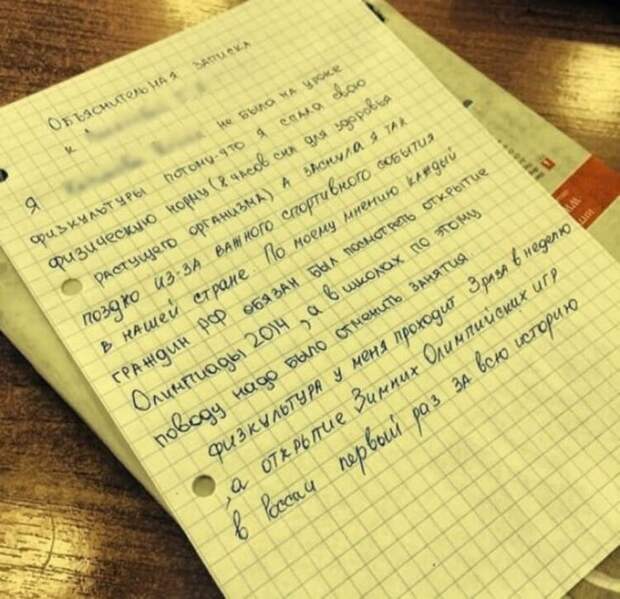 Объяснительная записка
к
Я не была на уроке
физкультуры потому-что я спала свою
физическую норму (8 часов сна для здоровья
растущего организма) а заснула я так
поздко из-за важного спортивного события
в нашей стране. По моему мнению каждый
граждин РФ обязан был посмотреть открытие
Олимпиады 2014, а в школах по этому
поводу надо было отменить занятия
физкультура у меня проходит 3 раза в неделю
, а открытие Зимних Олимпийских игр
в России первый раз за всю историю